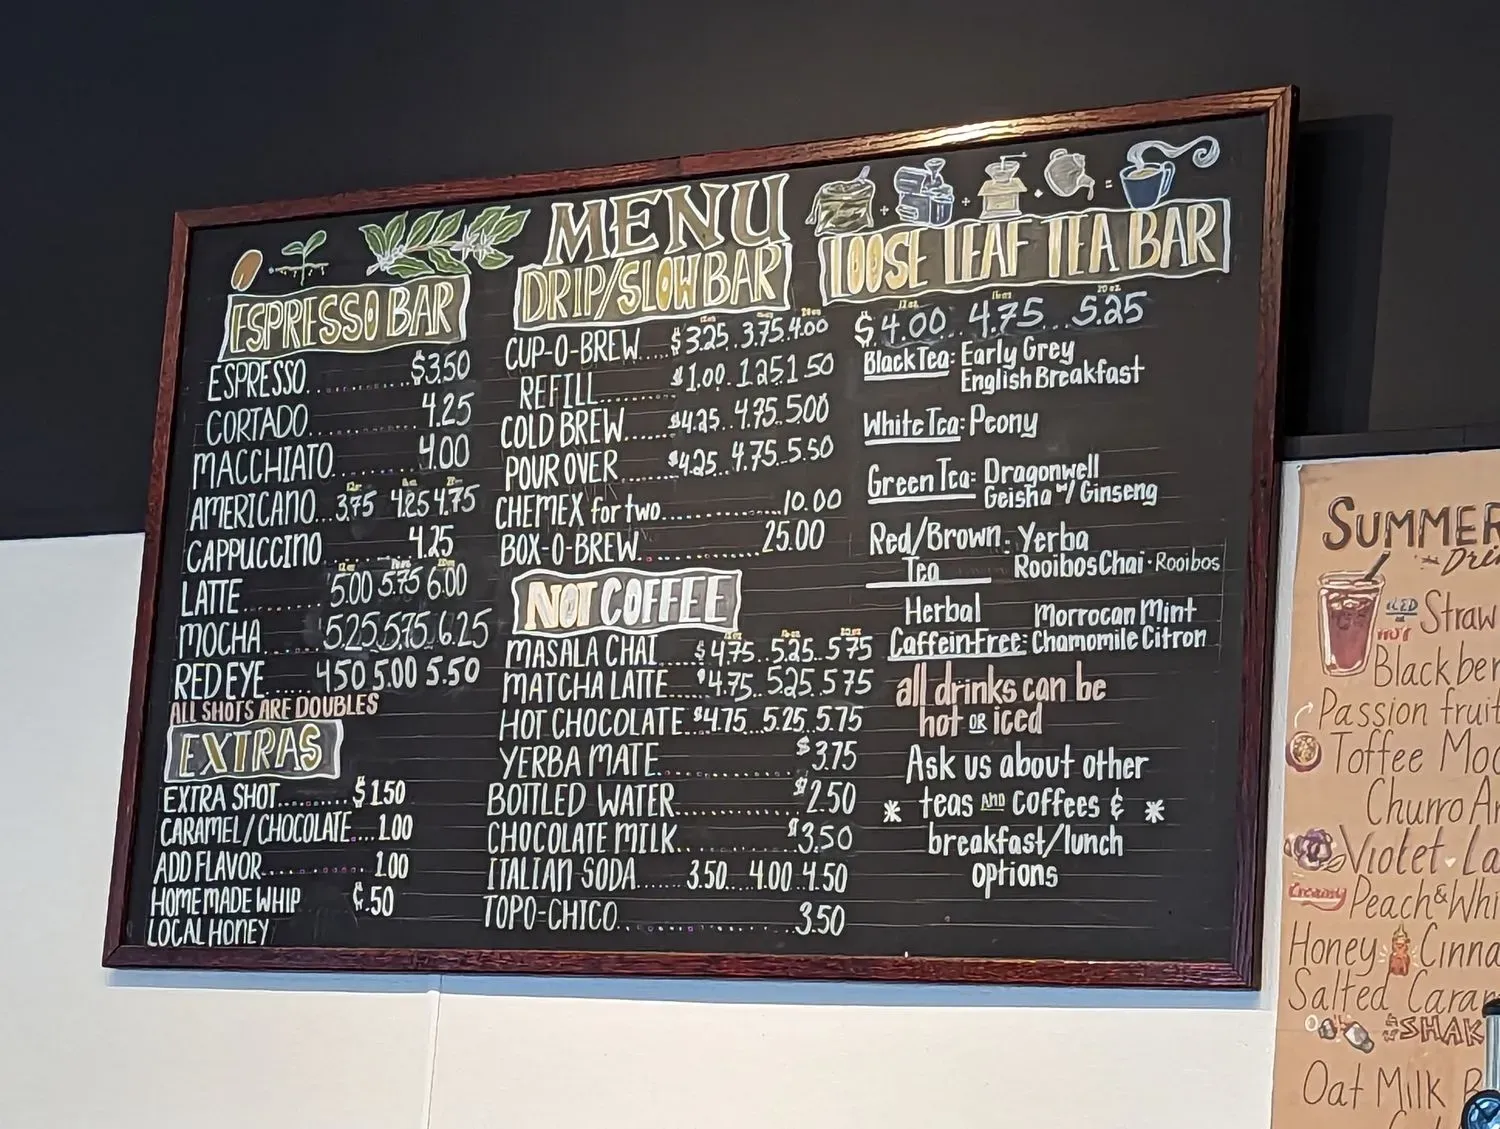 MENU
ESPRESSO BAR
ESPRESSO. $3.50
CORTADO 4.25
MACCHIATO 4.00
12oz 16oz
AMERICANO 3.75 4.25 4.75
CAPPUCCINO 4.25
12oz 16oz 20oz
LATTE 5.00 5.75 6.00
MOCHA 5.25 5.75 6.25
RED EYE 4.50 5.00 5.50
ALL SHOTS ARE DOUBLES
EXTRAS
EXTRA SHOT $1.50
CARAMEL/CHOCOLATE 1.00
ADD FLAVOR 1.00
HOMEMADE WHIP ¢.50
LOCAL HONEY
DRIP/SLOW BAR
12oz 16oz 20oz
CUP-O-BREW $3.25 3.75 4.00
REFILL $1.00 1.25 1.50
COLD BREW $4.25 4.75 5.00
POUR OVER $4.25 4.75 5.50
CHEMEX for two 10.00
BOX-O-BREW 25.00
NOT COFFEE
12oz 16oz 20oz
MASALA CHAI $4.75 5.25 5.75
MATCHA LATTE $4.75 5.25 5.75
HOT CHOCOLATE $4.75 5.25 5.75
YERBA MATE $3.75
BOTTLED WATER $2.50
CHOCOLATE MILK $3.50
ITALIAN SODA 3.50 4.00 4.50
TOPO-CHICO 3.50
LOOSE LEAF TEA BAR
12oz 16oz 20oz
$4.00 4.75 5.25
Black Tea: Early Grey
English Breakfast
White Tea: Peony
Green Tea: Dragonwell
Geisha w/ Ginseng
Red/Brown: Yerba
Tea Rooibos Chai · Rooibos
Herbal Morrocan Mint
Caffein Free: Chamomile Citron
all drinks can be
hot OR iced
Ask us about other
* teas AND coffees & *
breakfast/lunch
options
SUMMER
ICED Straw
HOT
Blackber
Passion fruit
Toffee Moc
Churro
Violet La
Creamy Peach & Whi
Honey Cinna
Salted Caram
SHAK
Oat Milk